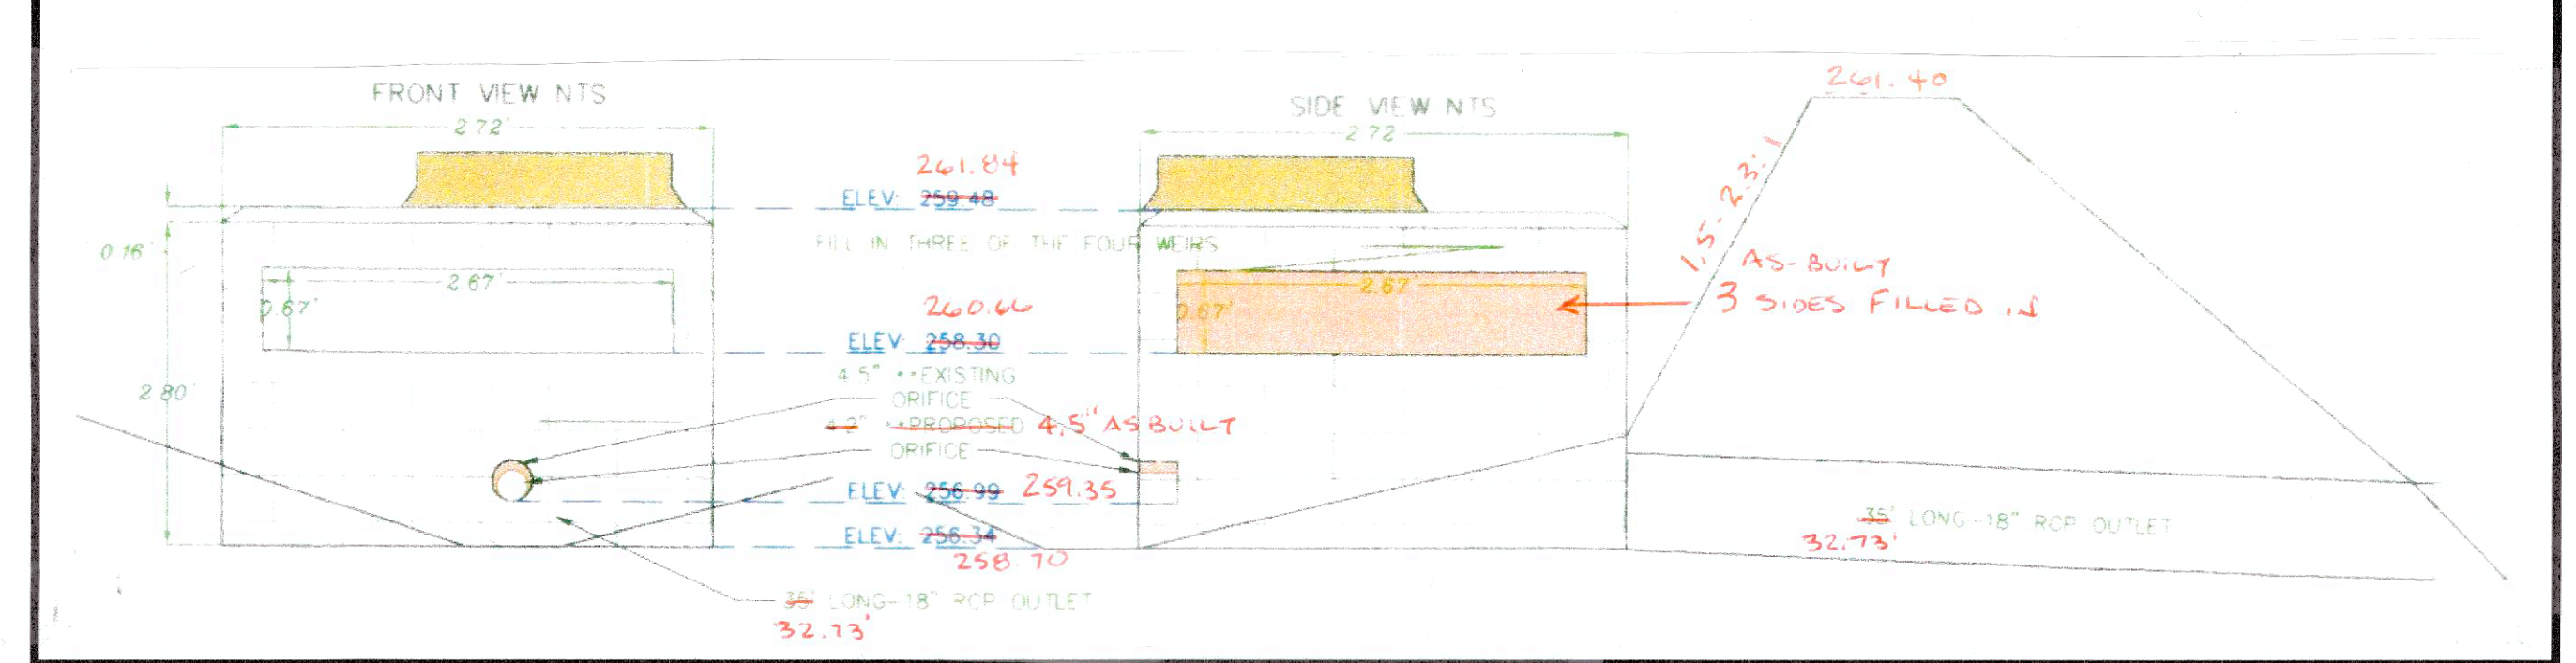 FRONT VIEW NTS
2.72'
0.16'
2.67'
0.67'
2.80'
261.84
ELEV: 259.48
FILL IN THREE OF THE FOUR WEIRS
260.66
ELEV: 258.30
4.5" **EXISTING
ORIFICE
4.2" **PROPOSED 4.5" AS BUILT
ORIFICE
ELEV: 256.99 259.35
ELEV: 256.34
258.70
35' LONG-18" RCP OUTLET
32.73'
SIDE VIEW NTS
2.72
2.67'
0.67'
261.40
1.5-2.3:1
AS-BUILT
3 SIDES FILLED IN
35' LONG-18" RCP OUTLET
32.73'